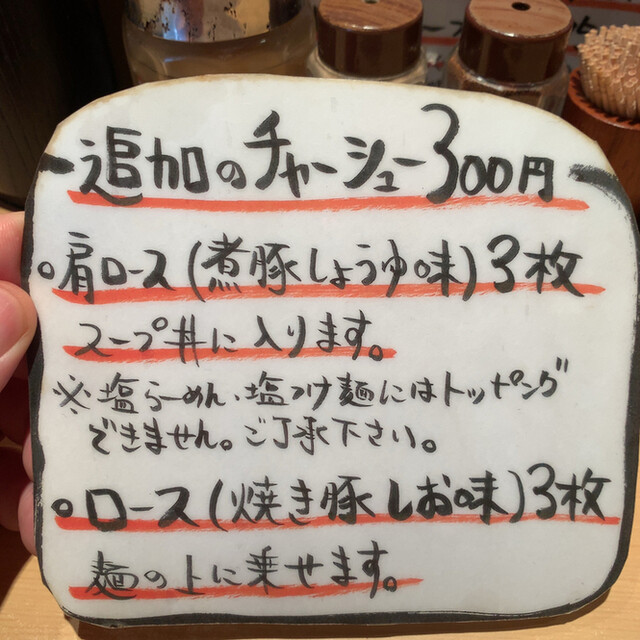 追加のチャーシュー300円
○肩ロース(煮豚しょうゆ味)3枚
スープ丼に入ります。
※塩らーめん、塩つけ麺にはトッピング
できません。ご了承下さい。
○ロース(焼き豚しお味)3枚
麺の上に乗せます。